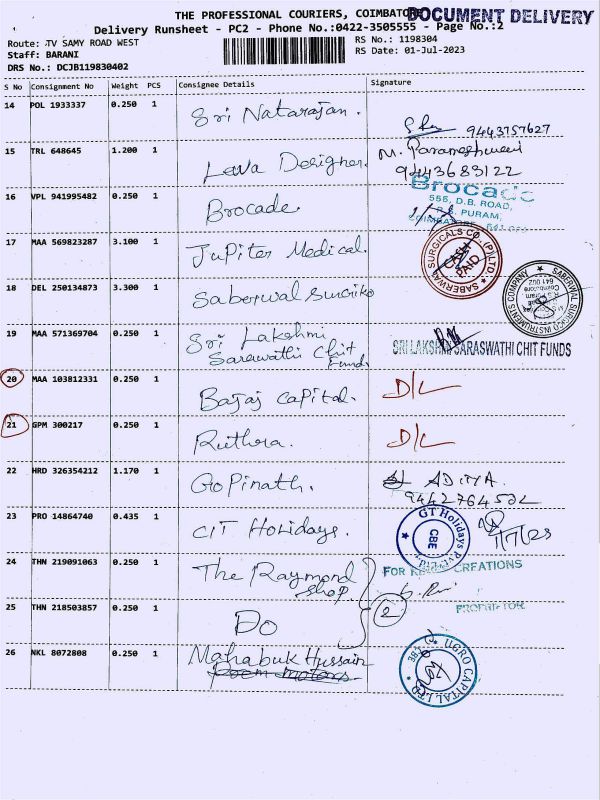 THE PROFESSIONAL COURIERS, COIMBATORE
DOCUMENT DELIVERY
Delivery Runsheet - PC2 - Phone No.:0422-3505555 - Page No.:2
Route: TV SAMY ROAD WEST
RS No.: 1198304
Staff: BARANI
RS Date: 01-Jul-2023
DRS No.: DCJB119830402
S No Consignment No Weight PCS Consignee Details Signature
14 POL 1933337 0.250 1 Sri Natarajan. 9443757627
15 TRL 648645 1.200 1 Leva Designer. M. Parameshwari
9443683122
16 VPL 941995482 0.250 1 Brocade
Brocade
556, D.B. ROAD,
R.S. PURAM,
COIMBATORE - 641 002
17 MAA 569823287 3.100 1 Jupiter Medical.
SABERWAL SURGICALS CO., (P) LTD
CASH
PAID
18 DEL 250134873 3.300 1 Saberwal Surgiko
SABERWAL SURGICO INSTRUMENTS COMPANY
R.S. Puram
Coimbatore
641 002
19 MAA 571369704 0.250 1 Sri Lakshmi
Sarawathi Chit
Funds
SRI LAKSHMI SARASWATHI CHIT FUNDS
20 MAA 103812331 0.250 1 Bajaj Capital. D/L
21 GPM 300217 0.250 1 Ruthra. D/L
22 HRD 326354212 1.170 1 Gopinath. ADITYA.
9442764532
23 PRO 14864740 0.435 1 CIT Holidays.
GT Holidays
CBE
1/7/23
24 THN 219091063 0.250 1 The Raymond
Shop
FOR CREATIONS
25 THN 218503857 0.250 1 Do 2
PROPRIETOR
26 NKL 8072808 0.250 1 Mahabuk Hussain
Poem motors
UGRO CAPITAL LTD